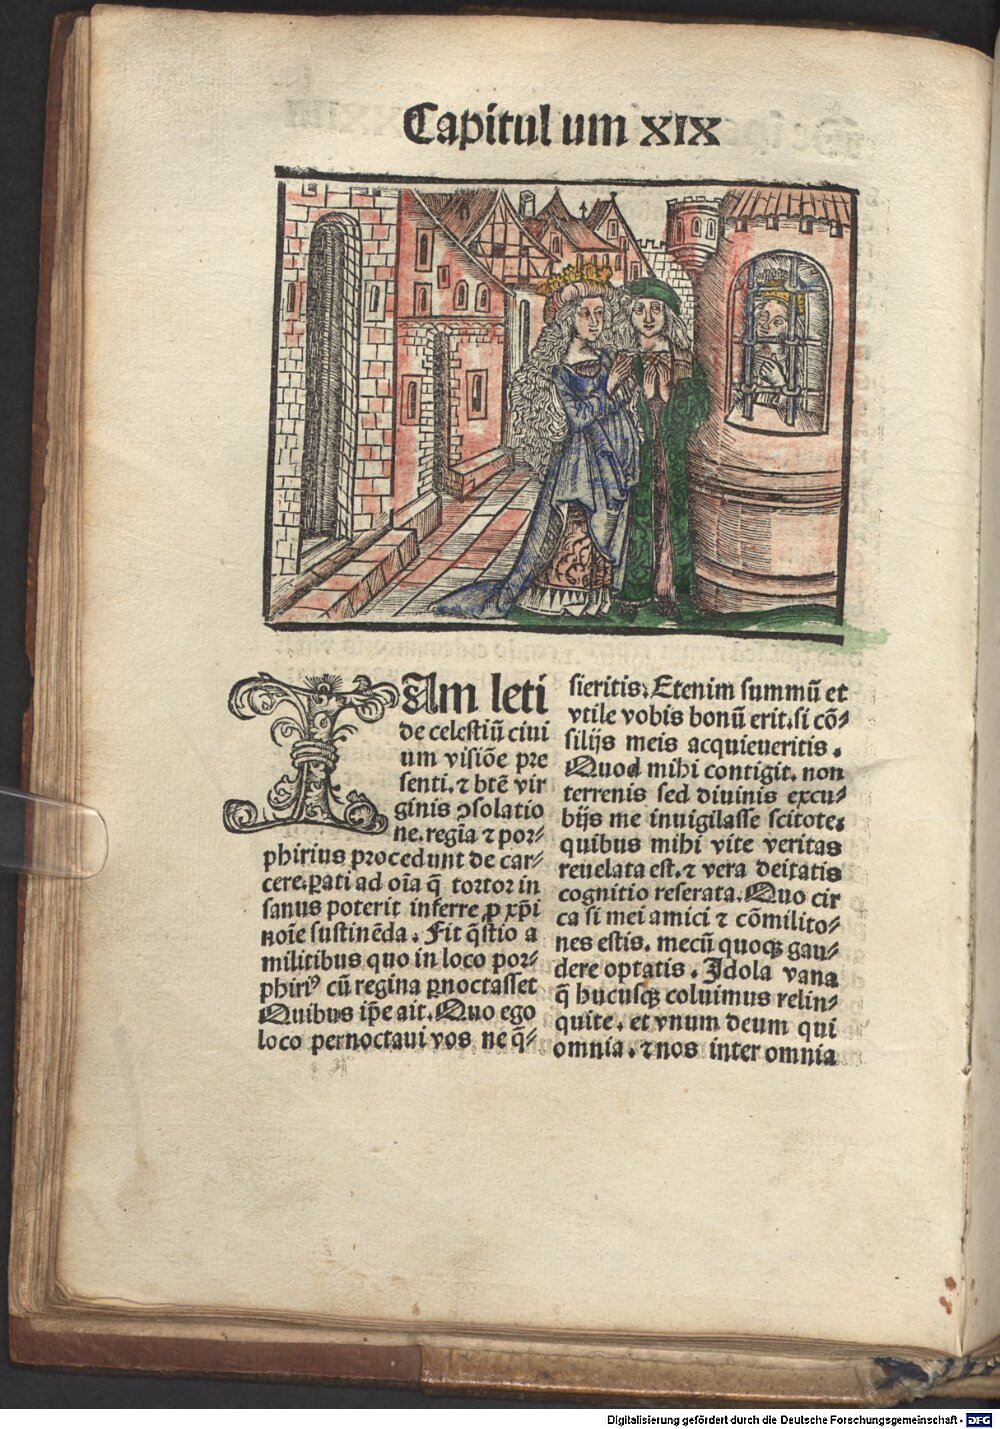 Capitulum XIX
IAm leti
de celestiū ciui
um visiōe pre
senti. ⁊ btē vir
ginis ꝯsolatio
ne. regīa ⁊ por⸗
phirius procedunt de car⸗
cere. ꝑati ad oīa q̄ tortor in
sanus poterit inferre ꝓ xp̄i
noīe sustinēda. Fit q̄stio a
militibus quo in loco por⸗
phiriꝰ cū regina ꝑnoctasset
Quibus ip̄e ait. Quo ego
loco pernoctaui vos ne q̄⸗
sieritis. Etenim summū et
vtile vobis bonū erit. si cō⸗
silijs meis acquieueritis.
Quod mihi contigit. non
terrenis sed diuinis excu⸗
bijs me inuigilasse scitote.
quibus mihi vite veritas
reuelata est. ⁊ vera deitatis
cognitio reserata. Quo cir
ca si mei amici ⁊ cōmilito⸗
nes estis. mecū quoqꝫ gau⸗
dere optatis. Idola vana
q̄ hucusqꝫ coluimus relin⸗
quite. et vnum deum qui
omnia. ⁊ nos inter omnia
Digitalisierung gefördert durch die Deutsche Forschungsgemeinschaft - DFG